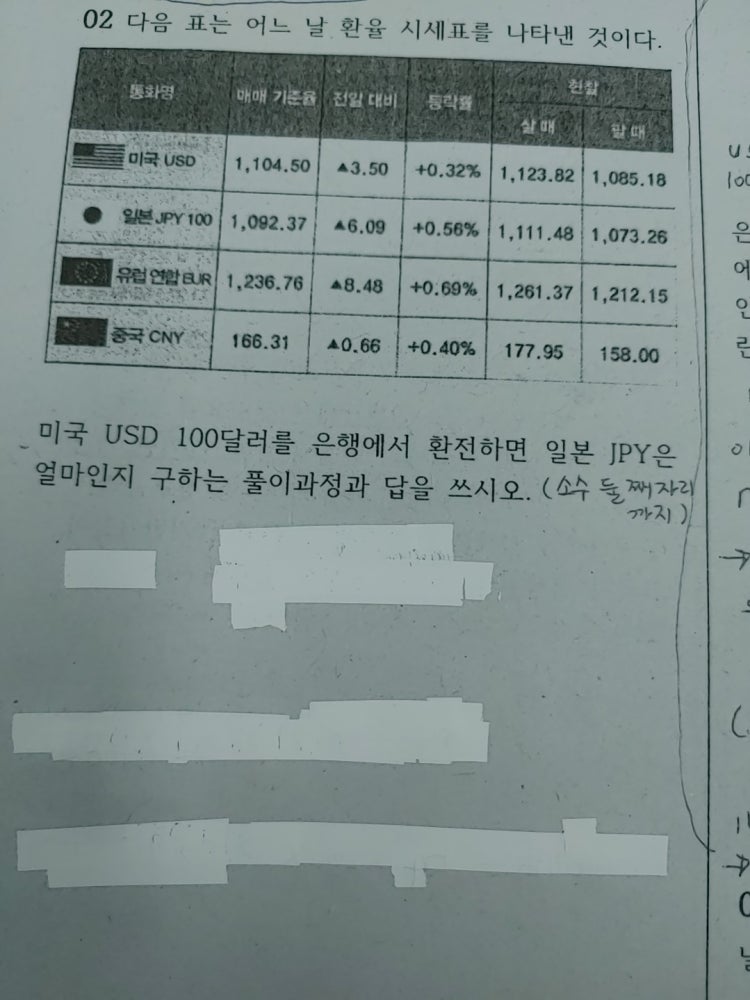 02 다음 표는 어느 날 환율 시세표를 나타낸 것이다.
통화명 매매 기준율 전일 대비 등락률 현찰
살 때 팔 때
미국 USD 1,104.50 ▲3.50 +0.32% 1,123.82 1,085.18
일본 JPY 100 1,092.37 ▲6.09 +0.56% 1,111.48 1,073.26
유럽 연합 EUR 1,236.76 ▲8.48 +0.69% 1,261.37 1,212.15
중국 CNY 166.31 ▲0.66 +0.40% 177.95 158.00
미국 USD 100달러를 은행에서 환전하면 일본 JPY은
얼마인지 구하는 풀이과정과 답을 쓰시오. (소수 둘째자리
까지)